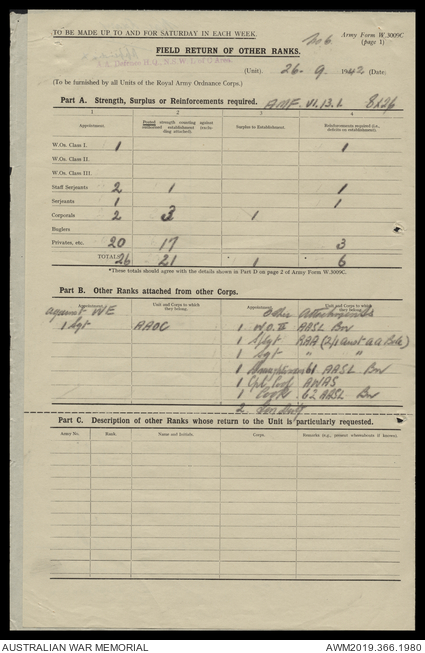 TO BE MADE UP TO AND FOR SATURDAY IN EACH WEEK.
Army Form W.3009C
(page 1)
No 6
FIELD RETURN OF OTHER RANKS.
(Unit). 26 . 9 . 1942 (Date).
(To be furnished by all Units of the Royal Army Ordnance Corps.)
Part A. Strength, Surplus or Reinforcements required. AMF. VI.13.1.
1 2 3 4
Appointment. Posted strength counting against authorised establishment (excluding attached). Surplus to Establishment. Reinforcements required (i.e., deficits on establishment).
W.Os. Class I. 1 1
W.Os. Class II.
W.Os. Class III.
Staff Serjeants 2 1 1
Serjeants 1 1
Corporals 2 3 1
Buglers
Privates, etc. 20 17 3
TOTAL 26 21 1 6
*These totals should agree with the details shown in Part D on page 2 of Army Form W.3009C.
Part B. Other Ranks attached from other Corps.
Appointment. Unit and Corps to which they belong. Appointment. Unit and Corps to which they belong.
against WE other Attachments
1 Sgt AAOC 1 W.O. II AASL
1 S/Sgt RAA (2/1 aust a a
1 Sgt " "
1 61 AASL
1 Cpl AWAS
1 62 AASL
2
Part C. Description of other Ranks whose return to the Unit is particularly requested.
Army No. Rank. Name and Initials. Corps. Remarks (e.g., present whereabouts if known)
AUSTRALIAN WAR MEMORIAL AWM2019.366.1980